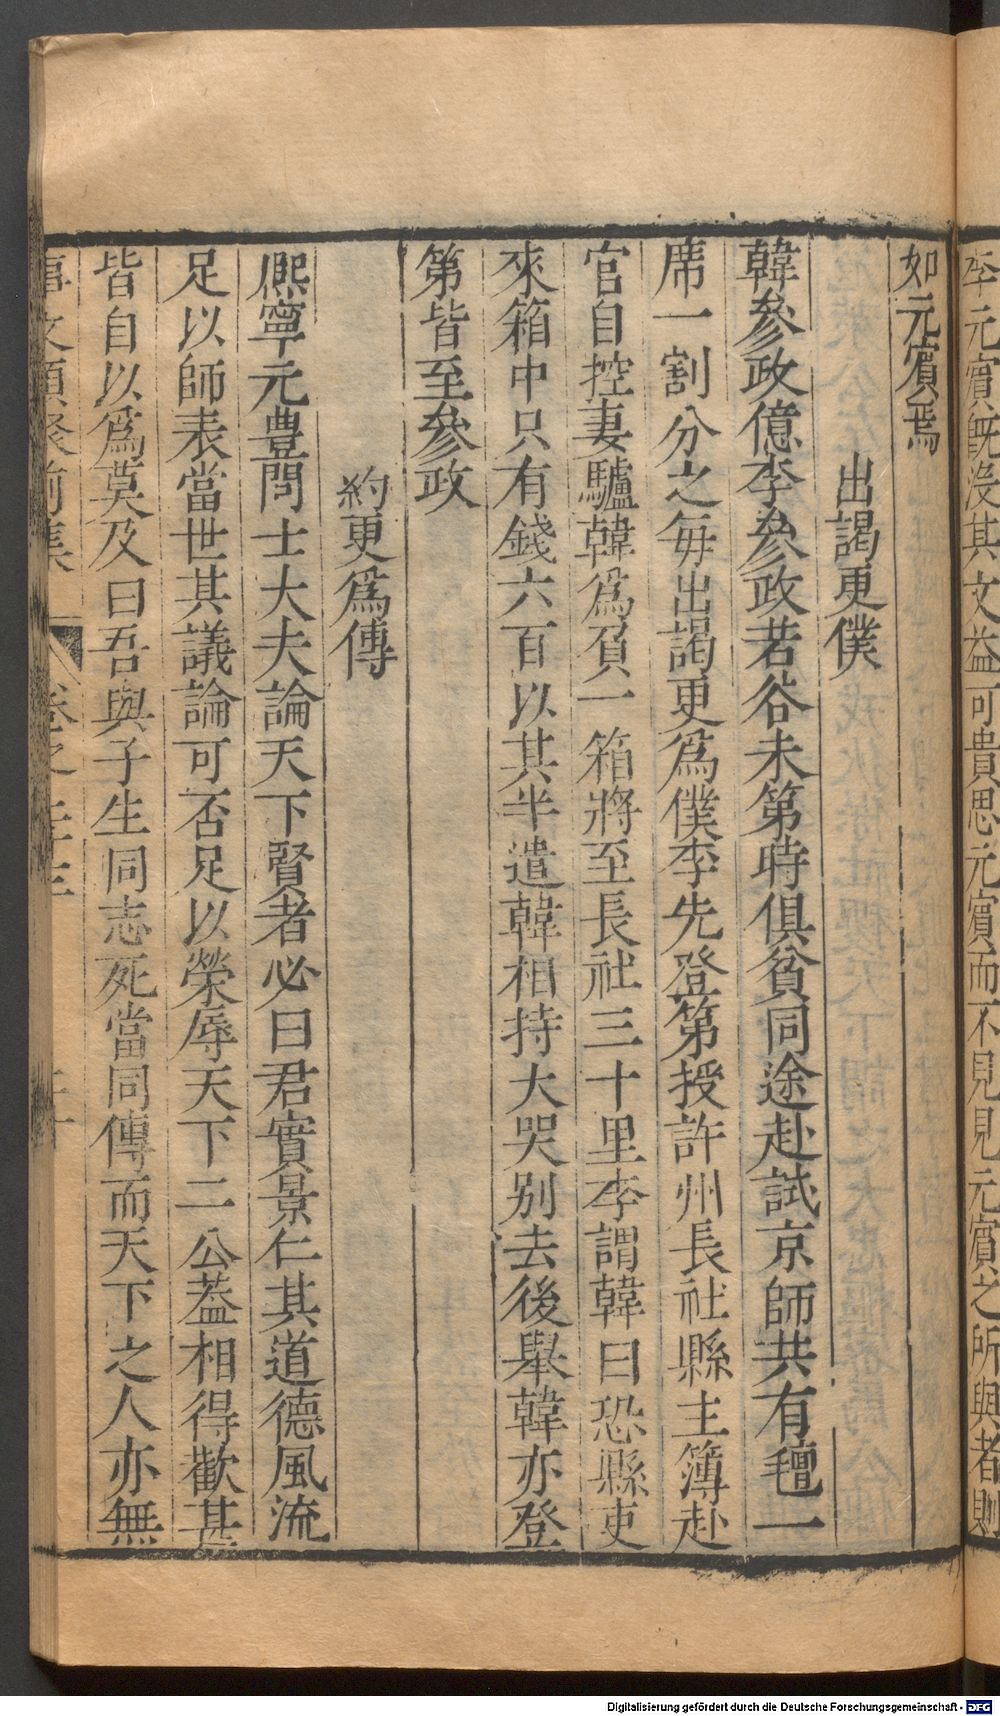 李元賓既没其文益可貴思元賓而不見見元賓之所與者則
如元賓焉
出謁更僕
韓參政億李參政若谷未第時俱貧同途赴試京師共有氊一
席一割分之每出謁更爲僕李先登第授許州長社縣主簿赴
官自控妻驢韓爲負一箱將至長社三十里李謂韓曰恐縣吏
來箱中只有錢六百以其半遣韓相持大哭别去後舉韓亦登
第皆至參政
約更爲傳
熈寧元豊間士大夫論天下賢者必曰君實景仁其道德風流
足以師表當世其議論可否足以榮辱天下二公葢相得歡甚
皆自以爲莫及曰吾與子生同志死當同傳而天下之人亦無
事文類聚前集 卷之三十三 二十
Digitalisierung gefördert durch die Deutsche Forschungsgemeinschaft - DFG